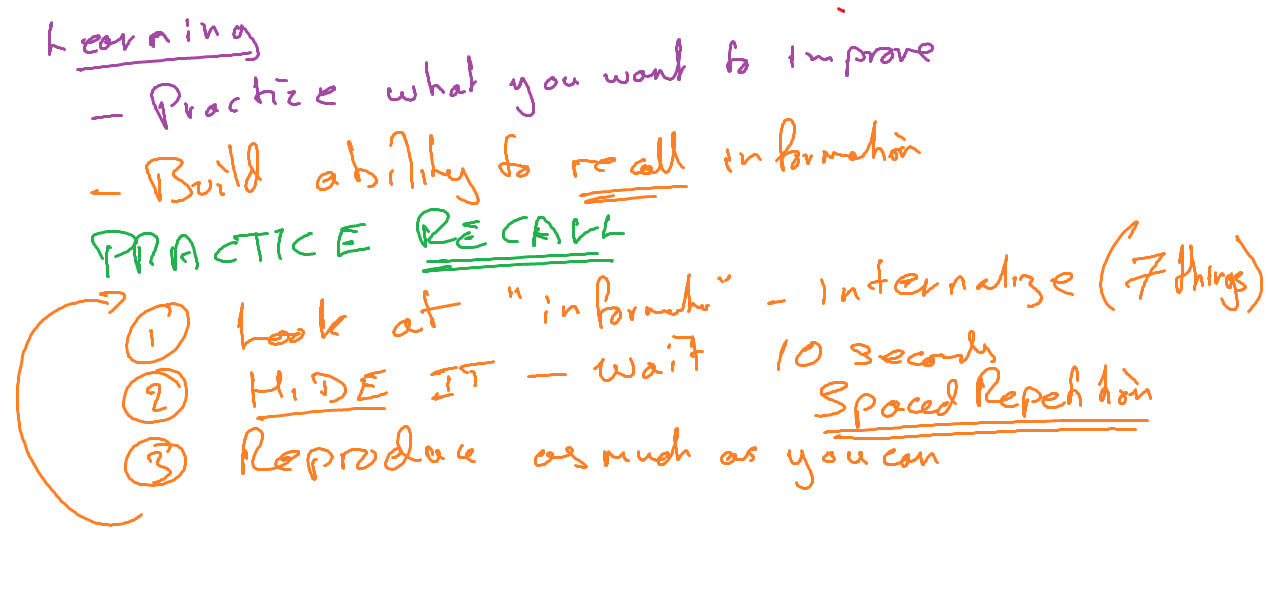 Learning
- Practize what you want to improve
- Build ability to recall information
PRACTICE RECALL
1 Look at "informatio" - internalize (7 things)
2 HIDE IT - wait 10 seconds
Spaced Repetition
3 Reproduce as much as you can